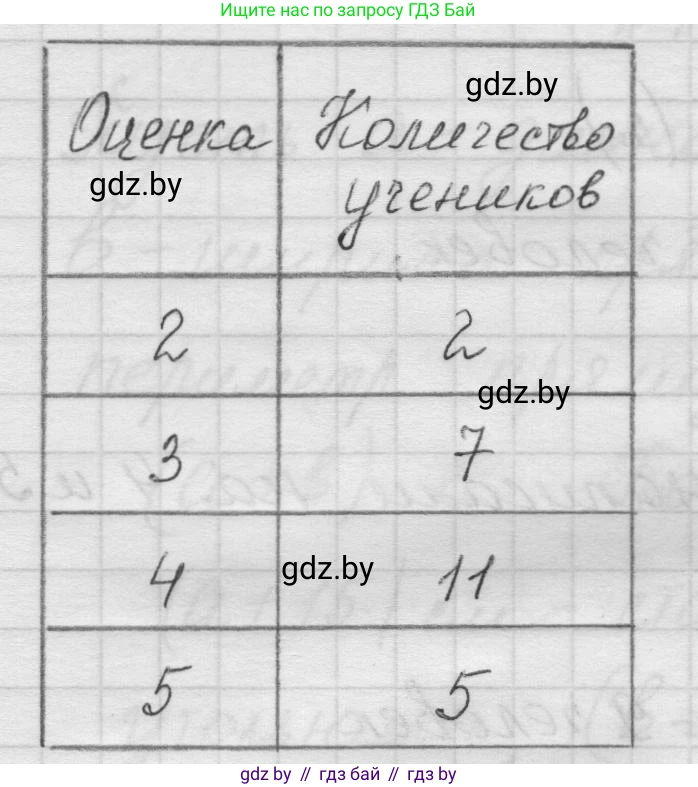 Ищите нас по запросу ГДЗ Бай
gdz.by
Оценка Количество
gdz.by учеников
2 2
gdz.by
3 7
4 gdz.by 11
5 5
gdz.by // гдз бай // gdz by